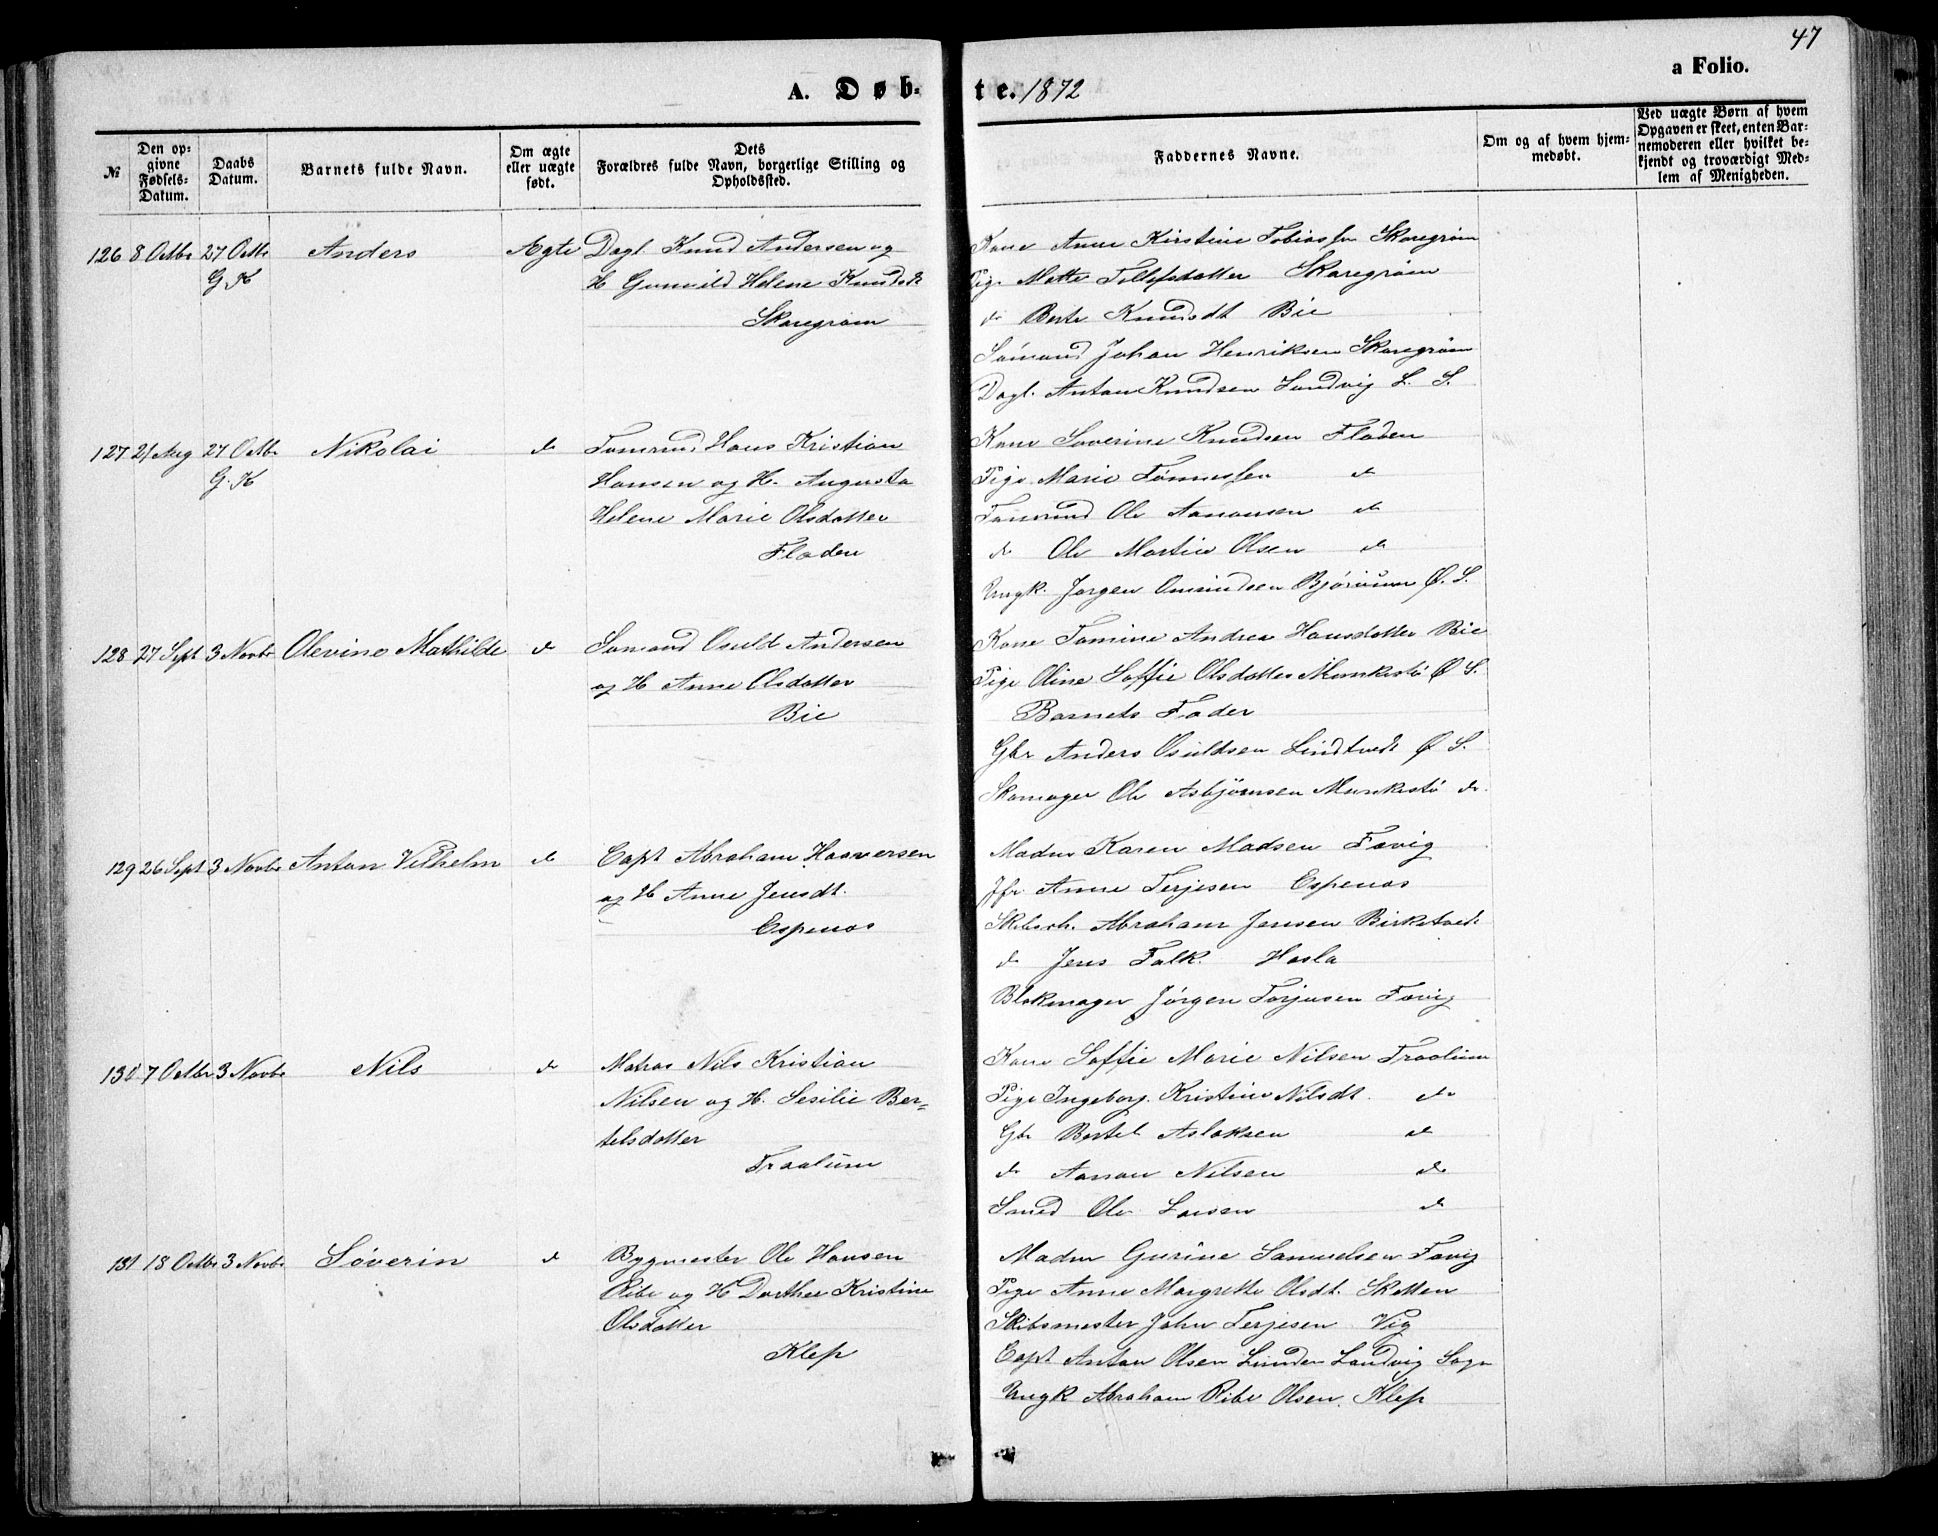 47
A. Døb-
te. 1872
a Folio.
№
Den op-
givne
Fødsels-
Datum.
Daabs
Datum.
Barnets fulde Navn.
Om ægte
eller uægte
født.
Dets
Forældres fulde Navn, borgerlige Stilling og
Opholdssted.
Faddernes Navne.
Om og af hvem hjem-
medøbt.
Ved uægte Børn af hvem
Opgaven er skeet, enten Bar-
nemoderen eller hvilket be-
kjendt og troværdigt Med-
lem af Menigheden.
126 8 Octbr 27 Octbr Anders Ægte Dagl. Knud Andersen og
G. K
H Gunvild Helene Knudsdt
Skaregrøm
Kone Anne Kirstine Tobiassen Skaregrøm
Pige Mette Tellefsdatter Skaregrøm
do Berte Knudsdt Bie
Sømand Johan Henriksen Skaregrøm
Dagl. Anton Knudsen Landvig L. S.
127 21 Aug 27 Octbr Nikolai do Tømmd. Hans Kristian
G. K
Hansen og H. Augusta
Helene Marie Olsdatter
Fladen
Kone Severine Knudsen Fladen
Pige Marie Tønnessen do
Tømmd Ole Aanonsen do
do Ole Martin Olsen do
Ungk. Jørgen Omundsen Ø. S.
128 27 Sept 3 Novbr Olevine Mathilde do Sømand Osuld Andersen
og H Anne Olsdatter
Bie
Kone Tomine Andrea Hansdatter Bie
Pige Oline Soffie Olsdatter Munkestø Ø S.
Barnets Fader
Gbr Anders Osuldsen Lindtvedt Ø S.
Skomager Ole Asbjørnsen Munkestø do.
129 26 Sept 3 Novbr Anton Vilhelm do Capt Abraham Haaversen
og H Anne Jensdt.
Espenæs
Madm Karen Madsen Fævig
Jfr. Anne Terjesen Espenæs
Skibsch. Abraham Jensen Birketvedt
do Jens Falk Hasla
Blokmager Jørgen Torjusen Fævig
130 7 Octbr 3 Novbr Nils do Matros Nils Kristian
Nilsen og H. Sesilie Ber-
telsdatter
Traalum
Kone Soffie Marie Nilsen Traalum
Pige Ingeborg Kristine Nilsdt. do
Gbr Bertel Aslaksen do
do Aanon Nilsen do
Smed Ole Larsen do
131 18 Octbr 3 Novbr Søverin do Bygmester Ole Hansen
Ribe og H Dorthea Kristine
Olsdatter
Klep
Madm Gurine Samuelsen Fævig
Pige Anne Margrette Olsdt. Skatten
Skibsmester John Terjesen Vig
Capt Anton Olsen Lunden Landvig Sogn
Ungk Abraham Ribe Olsen. Klep